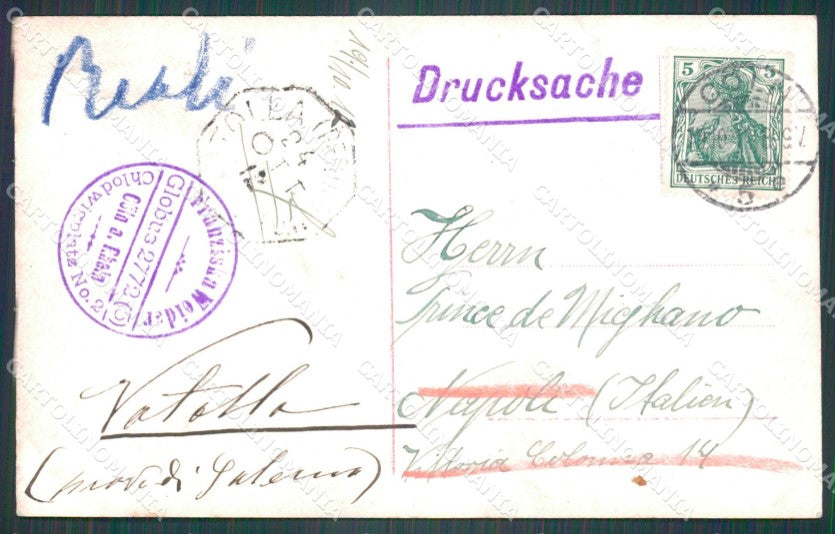 Drucksache
5 5
DEUTSCHES REICH
CÖLN
Franziska Weider
Globus 2772 (5)
Cöln a. Rhein
Chlodwigplatz No. 2
Herrn
Prince de Mighano
Napoli (Italien)
Vittoria Colonna 14
Vatolla
(prov. di Salerno)
CARTOLINOMANIA